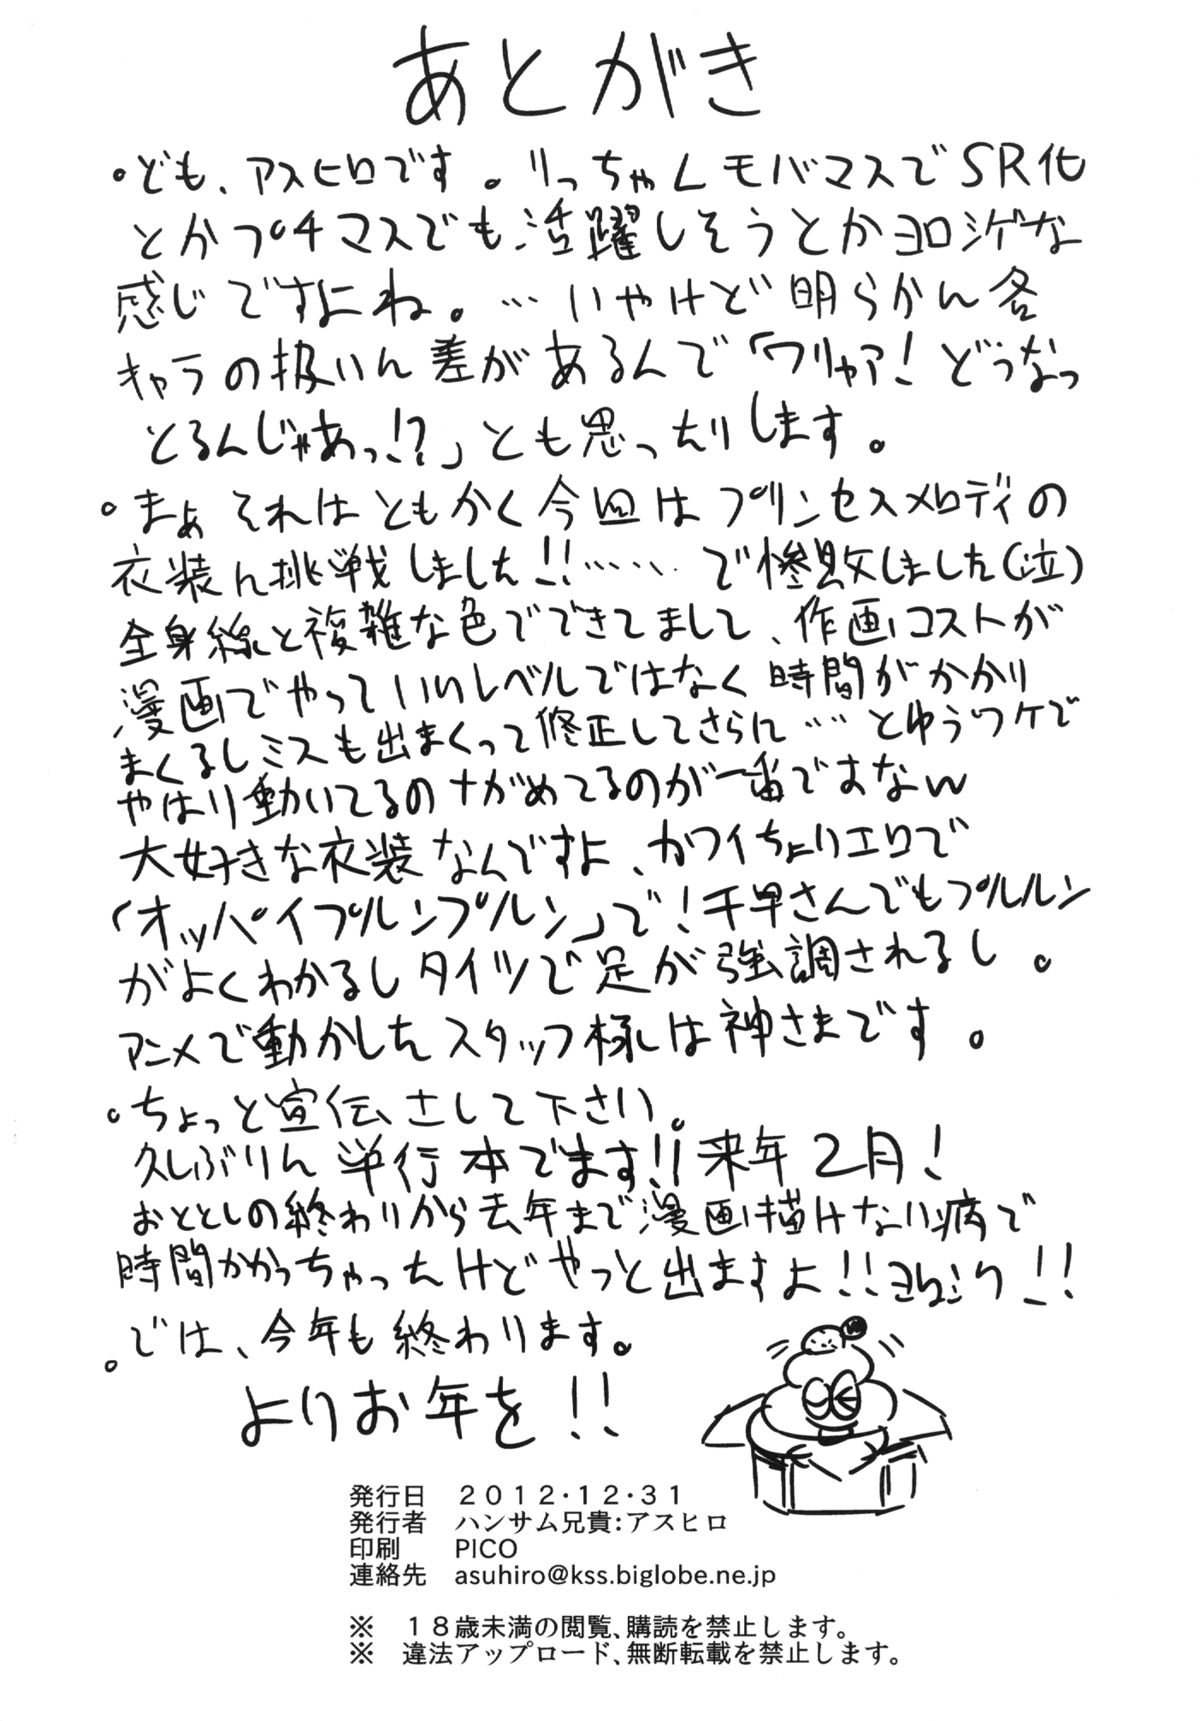 あとがき
。ども、アスヒロです。りっちゃんモバマスでSR化
とかプチマスでも活躍しそうとかヨロシゲな
感じですよね。…いやけど明らかに各
キャラの扱いに差があるんで「ワリャア!どうなっ
とるんじゃあっ!?」とも思ったりします。
。まぁそれはともかく今回はプリンセスメロディの
衣装に挑戦しました!!……で惨敗しました(泣)
全身線と複雑な色でできてまして、作画コストが
漫画でやっていいレベルではなく時間がかかり
まくるしミスも出まくって修正してさらに……とゆうワケで
やはり動いてるのナがめてるのが一番ですなw
大好きな衣装なんですよ、カワイちょりエロで
「オッパイプルンプルン」で!千早さんでもプルルン
がよくわかるしタイツで足が強調されるし。
アニメで動かしたスタッフ様は神さまです。
。ちょっと宣伝さして下さい。
久しぶりに単行本でます!!来年2月!
おととしの終わりから去年まで漫画描けない病で
時間かかっちゃったけどやっと出ますよ!!ヨロシク!!
。では、今年も終わります。
よりお年を!!
発行日 2012・12・31
発行者 ハンサム兄貴:アスヒロ
印刷 PICO
連絡先 asuhiro@kss.biglobe.ne.jp
※ 18歳未満の閲覧、購読を禁止します。
※ 違法アップロード、無断転載を禁止します。